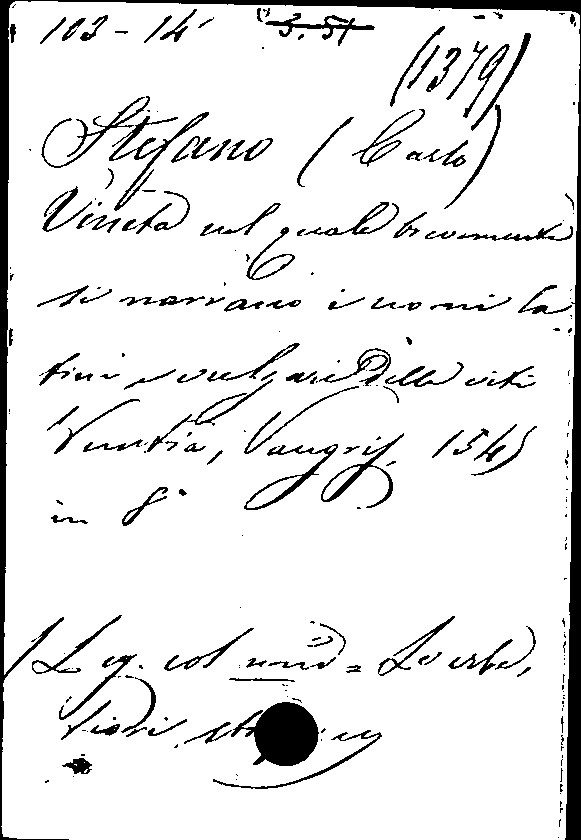 103-14 3.51
(1379)
Stefano (Carlo)
Vineta nel quale brevemente
si narrano i nomi la
tini e vulgari delle viti
Venetia, Vaugris, 1545
in 8°
(Leg. col = Le erbe,
fiori